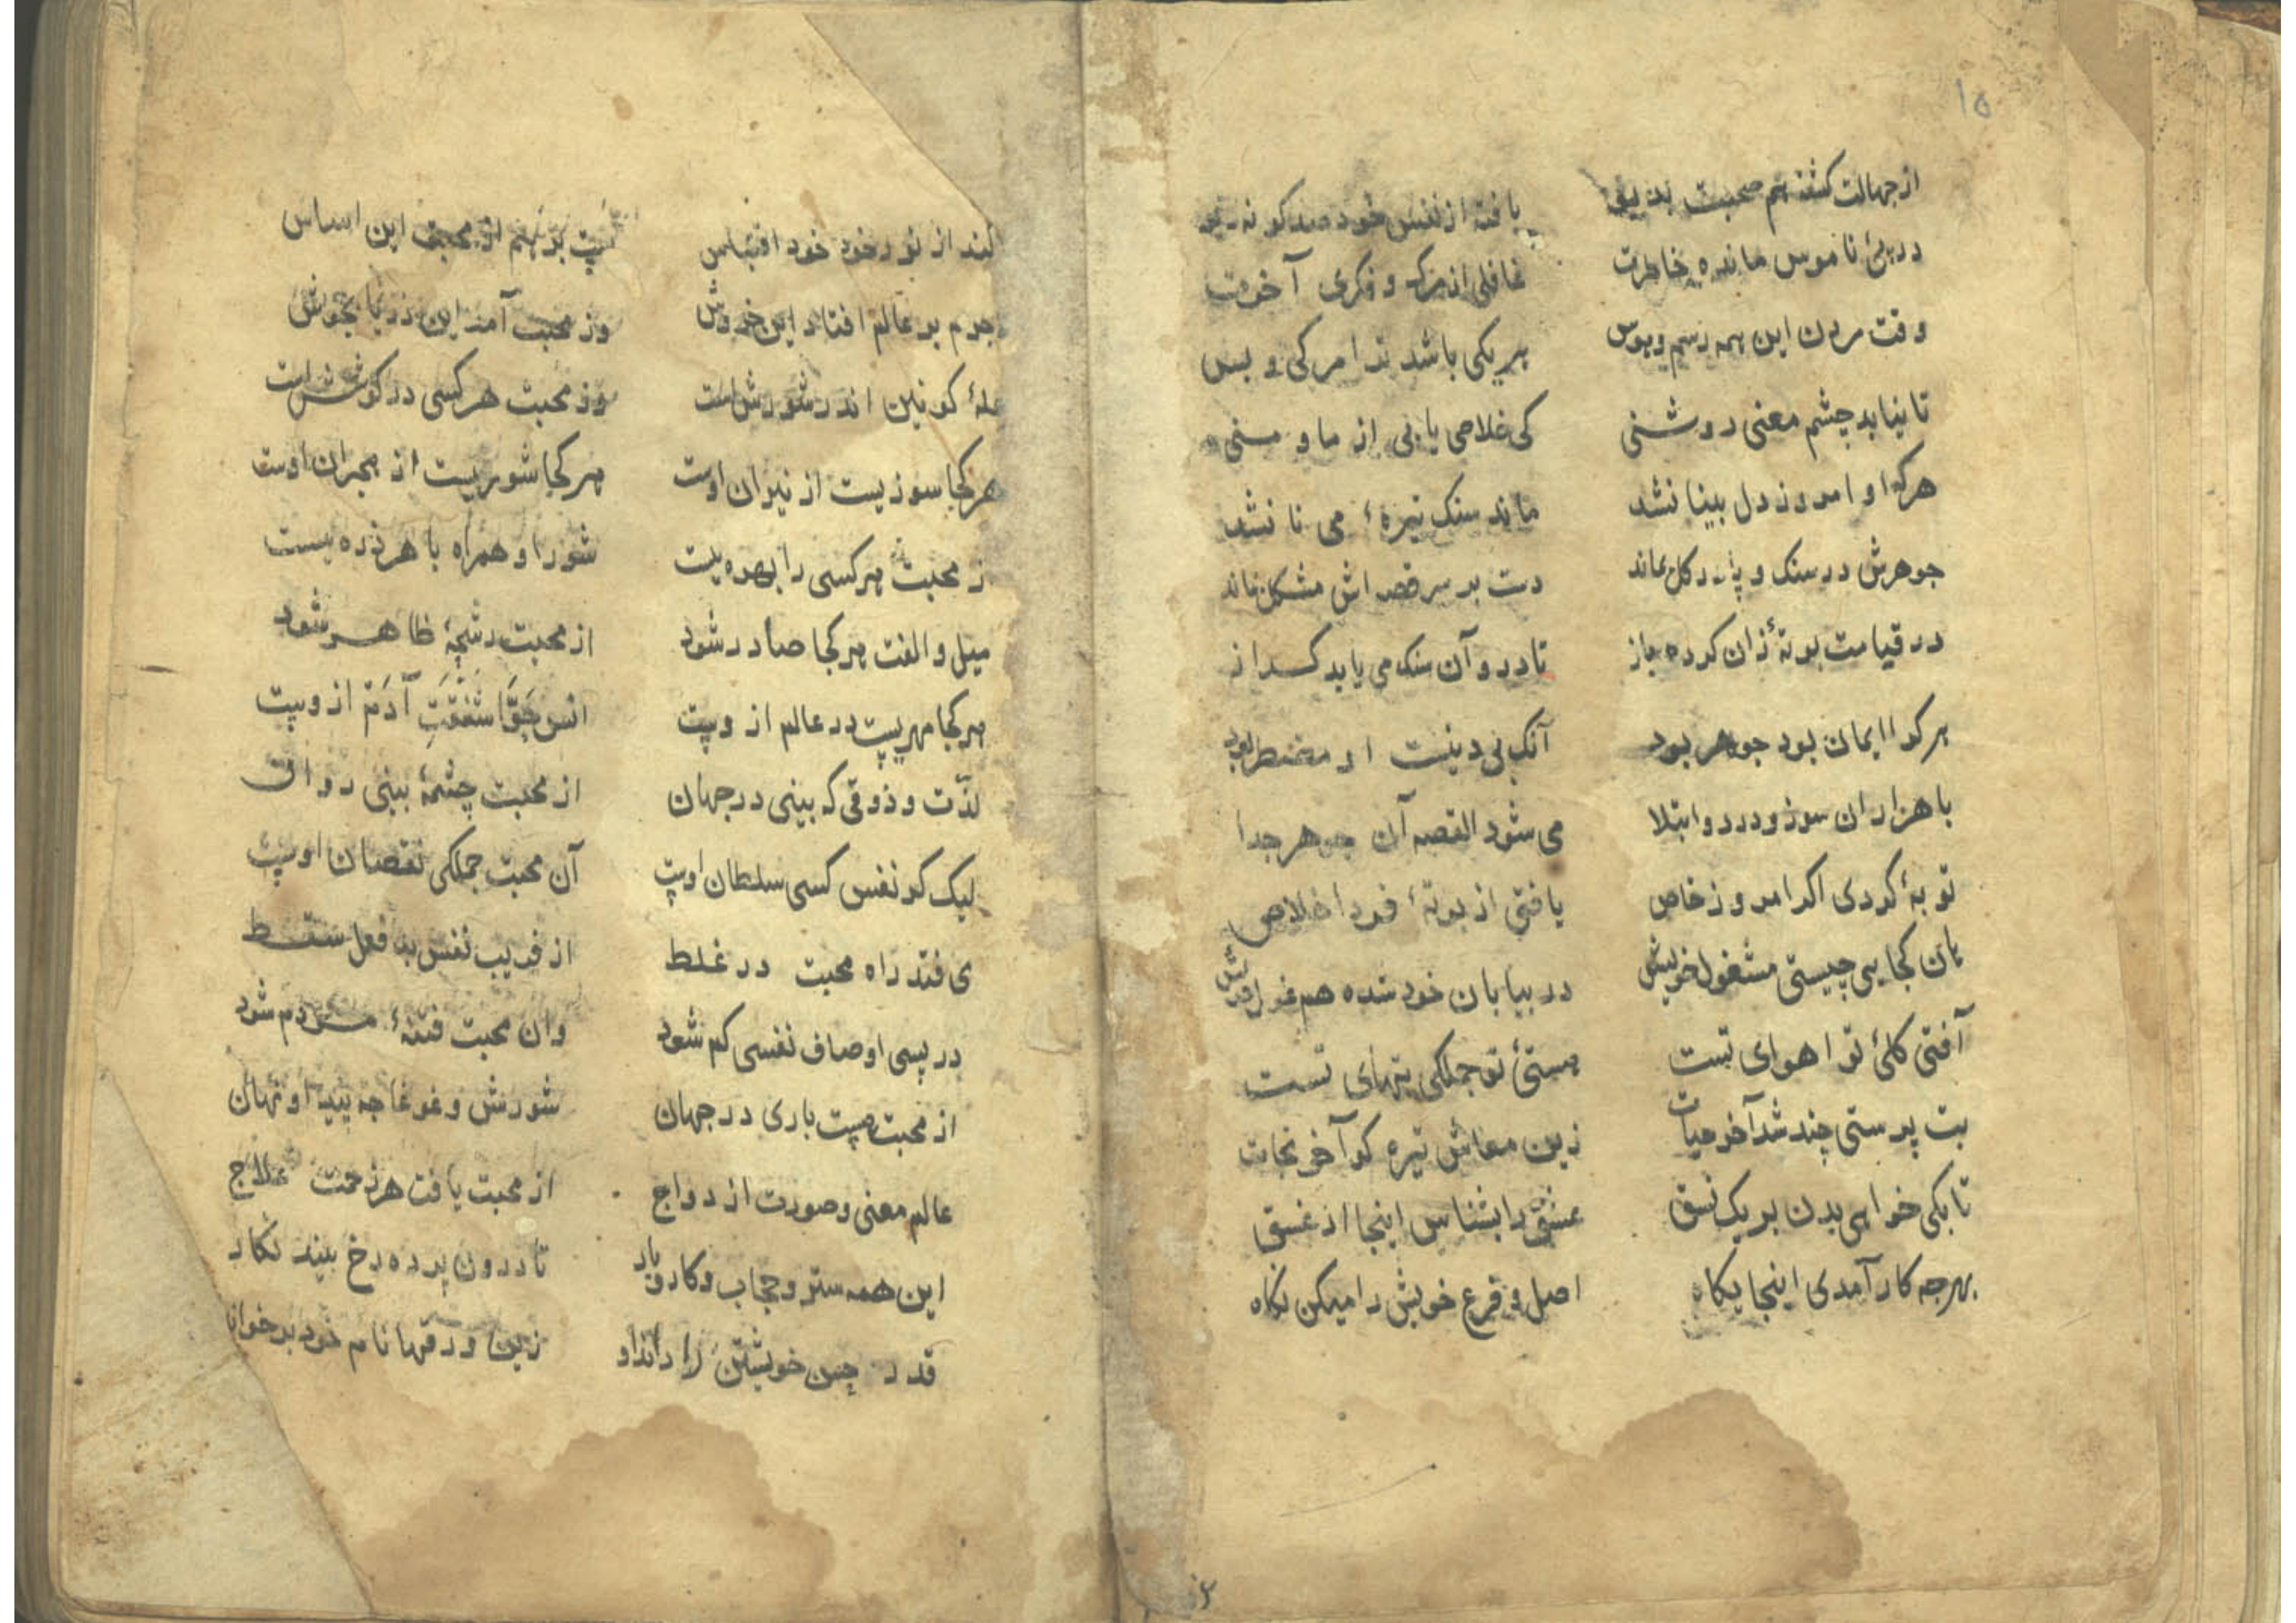 ۱۵
از جهالت کشته هم صحبت بدیو یافته از نفس خود صد کونه ریو
در پئ ناموس مانده خاطرت غافلی از مرک و فکری آخرت
وقت مردن این همه رسم و هوس هر یکی باشد ترا مرکی و بس
تا نیابد چشم معنی روشنی کی خلاصی یابی از ما و منی
هرکرا او امروز دل بینا نشد ماند سنک تیرهٔ می نا نشد
جوهرش در سنک و پا در کل بماند دست بر سر قصه اش مشکل بماند
در قیامت بوتهٔ زان کرده باز تا درو آن سنک می یابد کداز
هر کرا ایمان بود جوهر بود آنک بی دینست او مضطر بود
با هزاران سوز و درد و ابتلا می شود القصه آن جوهر جدا
توبهٔ کردی اکر امروز خاص یافتی از بوتهٔ فردا خلاص
هان کجایی چیستی مشغول خویش در بیابان خود شده هم غول خویش
آفتی کلئ تو اهوای تست هستئ تو جملکی بتهای تست
بت پرستی چند شد آخر حیات زین معاش تیره کو آخر نجات
تا بکی خواهی بدن بر یک نسق عشق را بشناس اینجا از غسق
بهر چه کار آمدی اینجا یکاه اصل و فرع خویش را میکن نکاه
کند از نور خود خود اقتباس پت بر هم از محبت این اساس
جرم بر عالم افتاد این خروش وز محبت آمد این دریا بجوش
جملهٔ کونین اندر شورش است وز محبت هر کسی در کوشش است
هر کجا سوزیست از نیران اوست هر کجا شوریست از هجران اوست
ز محبت هر کسی را بهره یست شور او همراه با هر ذره یست
میل و الفت هر کجا صادر شود از محبت رشحهٔ ظاهر شود
هر کجا مهریست در عالم ازوست انس حوّا شفقتِ آدم ازوست
لذّت و ذوقی که بینی در جهان از محبت چشمهٔ بینی روان
لیک کو نفس کسی سلطان اوست آن محبت جملکی نقصان اوست
ی فتد راه محبت در غلط از فریب نفس بد فعل سقط
در پسی اوصاف نفسی کم شود وان محبت فتنهٔ مردم شود
از محبت هست باری در جهان شورش و غوغا چه پیدا و نهان
عالم معنی و صورت ازدواج از محبت یافت هر زحمت علاج
این همه ستر و حجاب و کار و بار تا درون پرده رخ بیند نکار
قدر حسن خویشتن را داند او زین ورقها نام خود برخواند